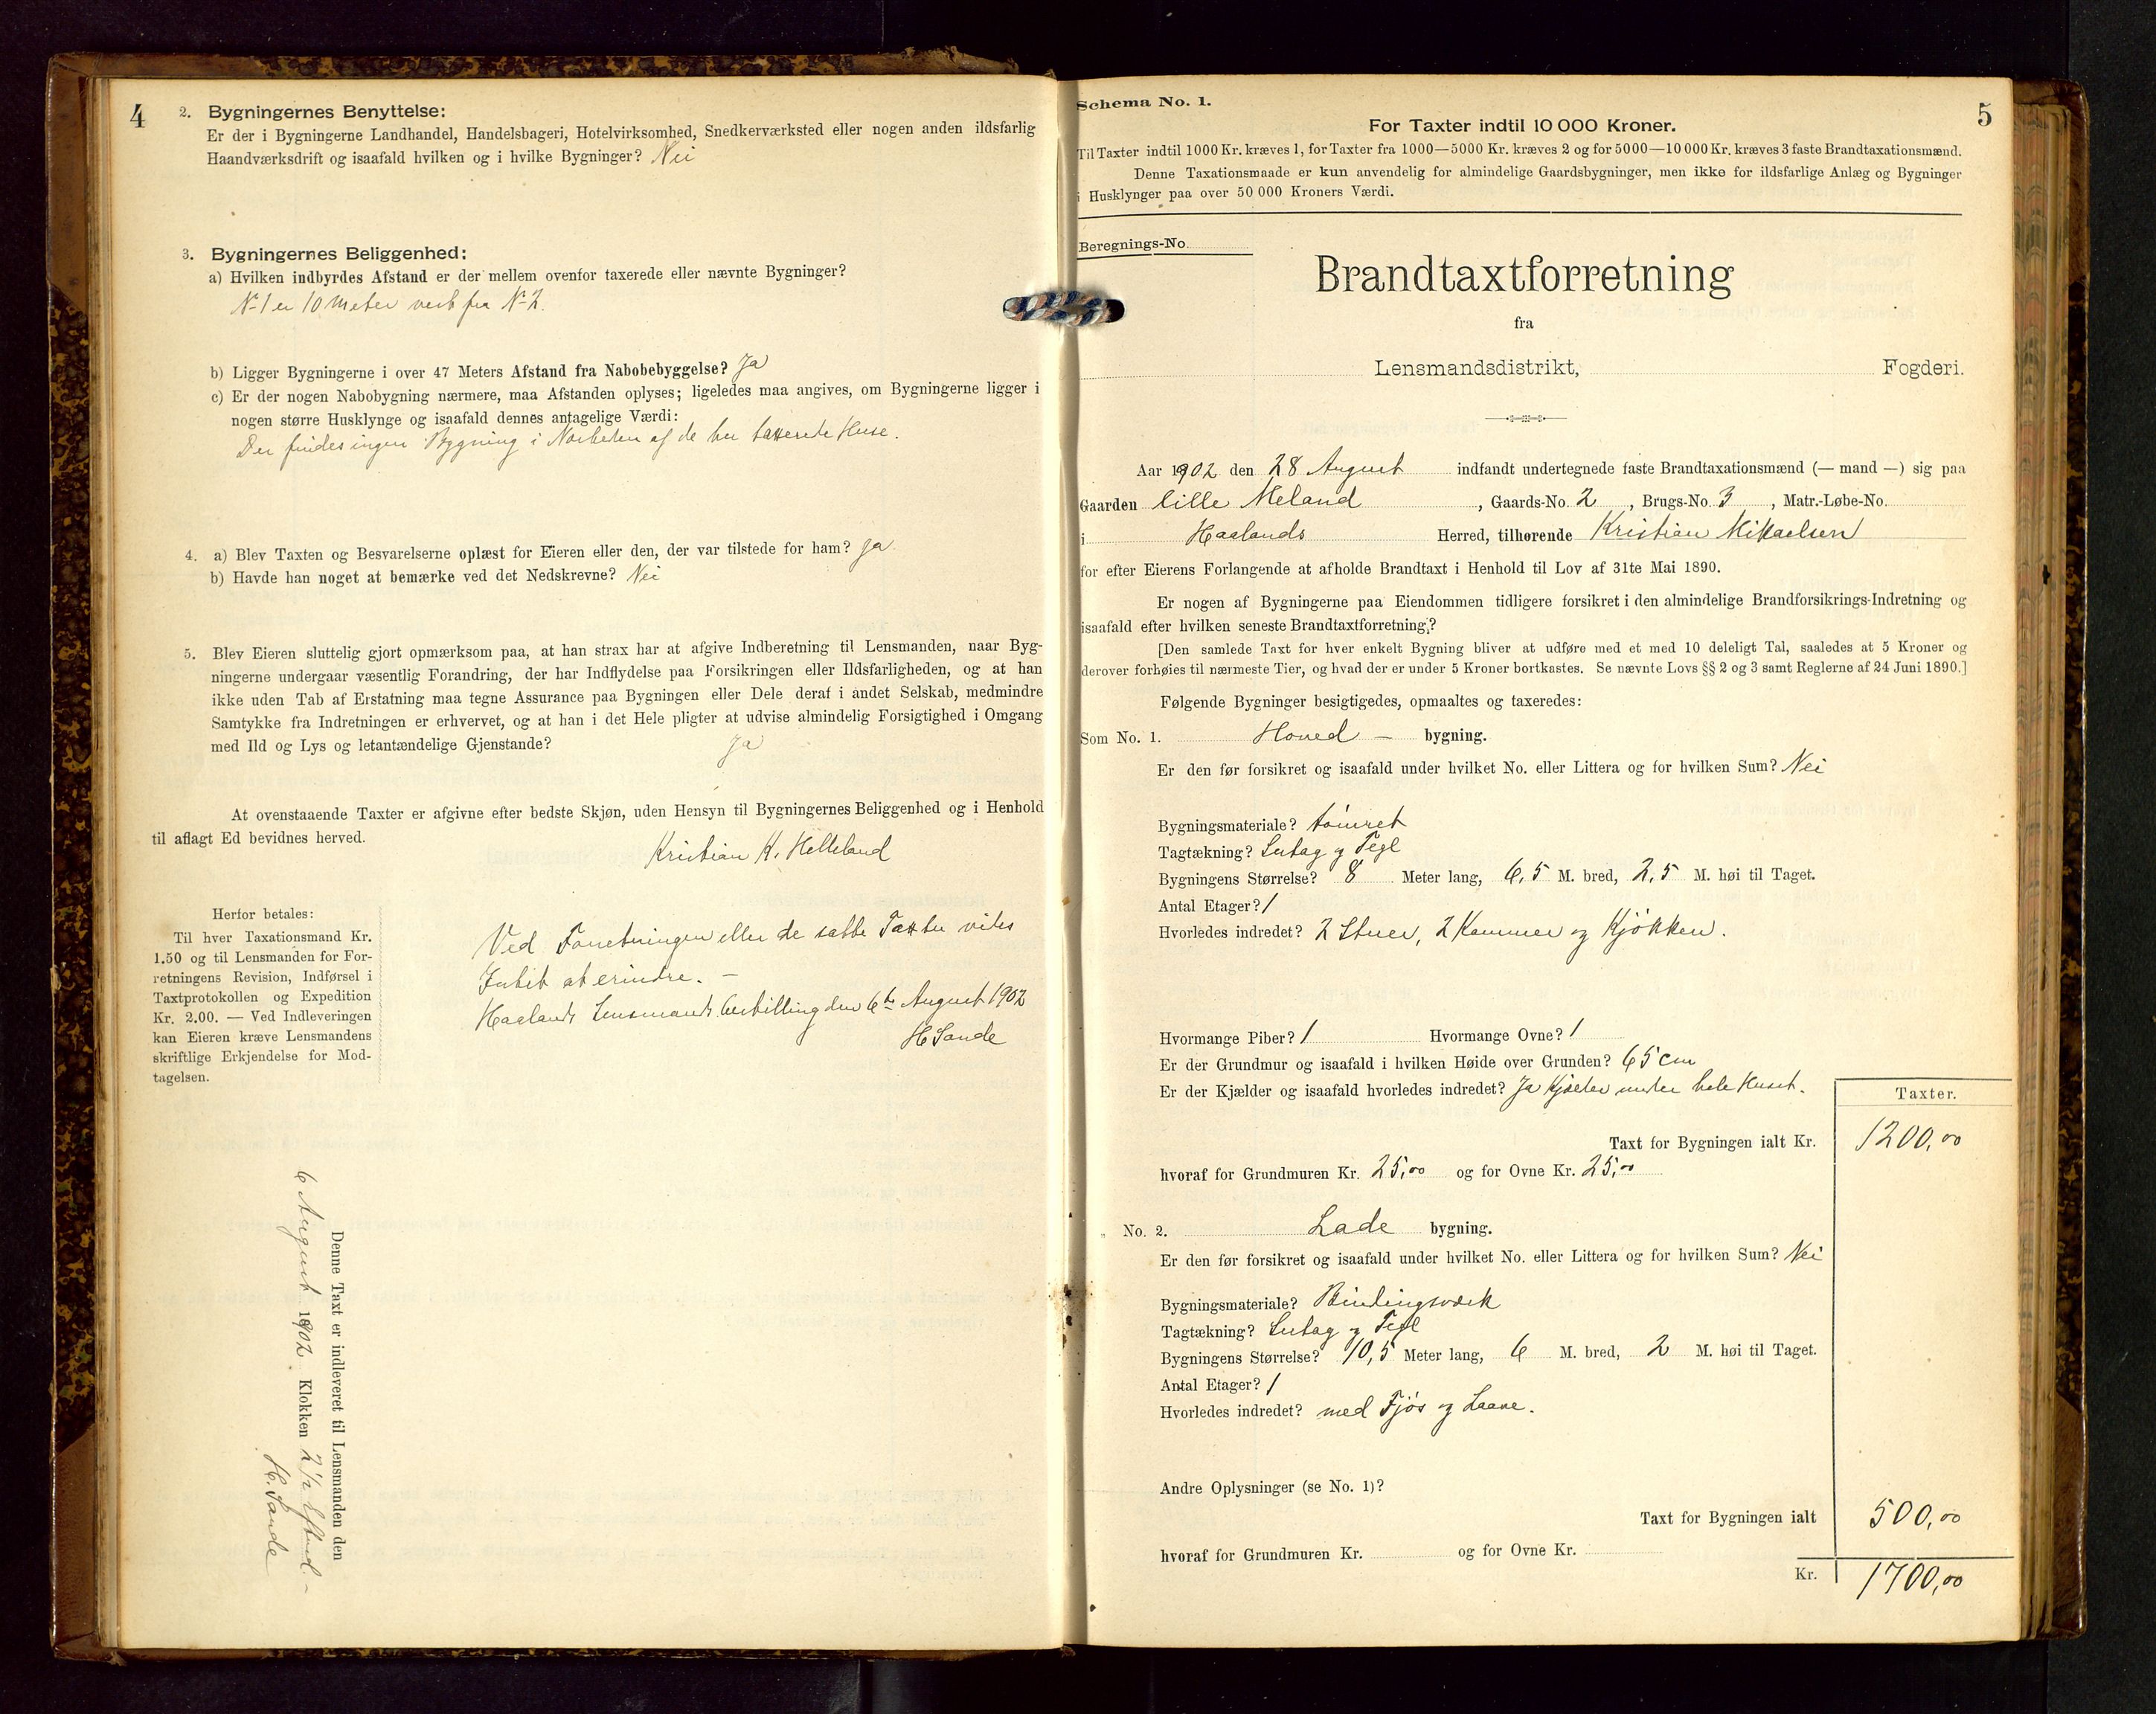 4
2. Bygningernes Benyttelse:
Er der i Bygningerne Landhandel, Handelsbageri, Hotelvirksomhed, Snedkerværksted eller nogen anden ildsfarlig
Haandværksdrift og isaafald hvilken og i hvilke Bygninger? Nei
3. Bygningernes Beliggenhed:
a) Hvilken indbyrdes Afstand er der mellem ovenfor taxerede eller nævnte Bygninger?
No 1 er 10 Meter vest fra No 2.
b) Ligger Bygningerne i over 47 Meters Afstand fra Nabobebyggelse? Ja
c) Er der nogen Nabobygning nærmere, maa Afstanden oplyses; ligeledes maa angives, om Bygningerne ligger i
nogen større Husklynge og isaafald dennes antagelige Værdi:
Der findes ingen Bygning i Nærheden af de her taxerede Huse.
4. a) Blev Taxten og Besvarelserne oplæst for Eieren eller den, der var tilstede for ham? Ja
b) Havde han noget at bemærke ved det Nedskrevne? Nei
5. Blev Eieren sluttelig gjort opmærksom paa, at han strax har at afgive Indberetning til Lensmanden, naar Byg-
ningerne undergaar væsentlig Forandring, der har Indflydelse paa Forsikringen eller Ildsfarligheden, og at han
ikke uden Tab af Erstatning maa tegne Assurance paa Bygningen eller Dele deraf i andet Selskab, medmindre
Samtykke fra Indretningen er erhvervet, og at han i det Hele pligter at udvise almindelig Forsigtighed i Omgang
med Ild og Lys og letantændelige Gjenstande? Ja
At ovenstaaende Taxter er afgivne efter bedste Skjøn, uden Hensyn til Bygningernes Beliggenhed og i Henhold
til aflagt Ed bevidnes herved.
Kristian K. Helleland
Herfor betales:
Til hver Taxationsmand Kr.
1.50 og til Lensmanden for For-
retningens Revision, Indførsel i
Taxtprotokollen og Expedition
Kr. 2.00. — Ved Indleveringen
kan Eieren kræve Lensmandens
skriftlige Erkjendelse for Mod-
tagelsen.
Ved Forretningen eller de satte Taxter vides
Intet at erindre. —
Haalands Lensmands bestilling den 6te August 1902
H Sande
Denne Taxt er indleveret til Lensmanden den
6 August 1902 Klokken 2 1/2 Eftmd. –
H. Sande
Schema No. 1.
5
For Taxter indtil 10 000 Kroner.
Til Taxter indtil 1000 Kr. kræves 1, for Taxter fra 1000—5000 Kr. kræves 2 og for 5000—10 000 Kr. kræves 3 faste Brandtaxationsmænd.
Denne Taxationsmaade er kun anvendelig for almindelige Gaardsbygninger, men ikke for ildsfarlige Anlæg og Bygninger
i Husklynger paa over 50 000 Kroners Værdi.
Beregnings-No
Brandtaxtforretning
fra
Lensmandsdistrikt, Fogderi.
Aar 1902 den 28 August indfandt undertegnede faste Brandtaxationsmænd (— mand —) sig paa
Gaarden lille Meland, Gaards-No. 2, Brugs-No. 3, Matr.-Løbe-No.
i Haalands Herred, tilhørende Kristian Mikaelsen
for efter Eierens Forlangende at afholde Brandtaxt i Henhold til Lov af 31te Mai 1890.
Er nogen af Bygningerne paa Eiendommen tidligere forsikret i den almindelige Brandforsikrings-Indretning og
isaafald efter hvilken seneste Brandtaxtforretning?
[Den samlede Taxt for hver enkelt Bygning bliver at udføre med et med 10 deleligt Tal, saaledes at 5 Kroner og
derover forhøies til nærmeste Tier, og hvad der er under 5 Kroner bortkastes. Se nævnte Lovs §§ 2 og 3 samt Reglerne af 24 Juni 1890.]
Følgende Bygninger besigtigedes, opmaaltes og taxeredes:
Som No. 1. Hoved — bygning.
Er den før forsikret og isaafald under hvilket No. eller Littera og for hvilken Sum? Nei
Bygningsmateriale? tømret
Tagtækning? Sutag og Tegl
Bygningens Størrelse? 8 Meter lang, 6,5 M. bred, 2,5 M. høi til Taget.
Antal Etager? 1
Hvorledes indredet? 2 Stuer, 2 Kammer og Kjøkken.
Hvormange Piber? 1 Hvormange Ovne? 1
Er der Grundmur og isaafald i hvilken Høide over Grunden? 65 cm
Er der Kjælder og isaafald hvorledes indredet? Ja Kjælder under hele Huset.
Taxter.
Taxt for Bygningen ialt Kr. 1200,00
hvoraf for Grundmuren Kr. 25,00 og for Ovne Kr. 25,00
„ No. 2. Lade bygning.
Er den før forsikret og isaafald under hvilket No. eller Littera og for hvilken Sum? Nei
Bygningsmateriale? Bindingsværk
Tagtækning? Sutag og Tegl
Bygningens Størrelse? 10,5 Meter lang, 6 M. bred, 2 M. høi til Taget.
Antal Etager? 1
Hvorledes indredet? med Fjøs og Laave.
Andre Oplysninger (se No. 1)?
Taxt for Bygningen ialt 500,00
hvoraf for Grundmuren Kr. og for Ovne Kr.
Kr. 1700,00